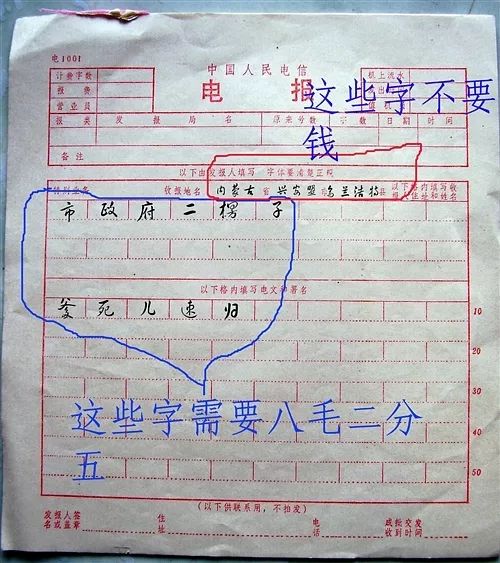 电1001
中国人民电信
电 报
计费字数
报 费
营业员
机上流水
报类 发报局名 原来号数 字数 日期 时间
备注
这些字不要
钱
以下由发报人填写 字体要清楚正规
特别业务 收报地名 内蒙古省 兴安盟市 乌兰浩特县 以下格内填写收报人住址和姓名
市政府二楞子
以下格内填写电文和署名
爹死儿速归
10
20
30
40
50
这些字需要八毛二分
五
(以下供联系用,不拍发)
发报人签名或盖章 住址 电话 或批交发收到时间